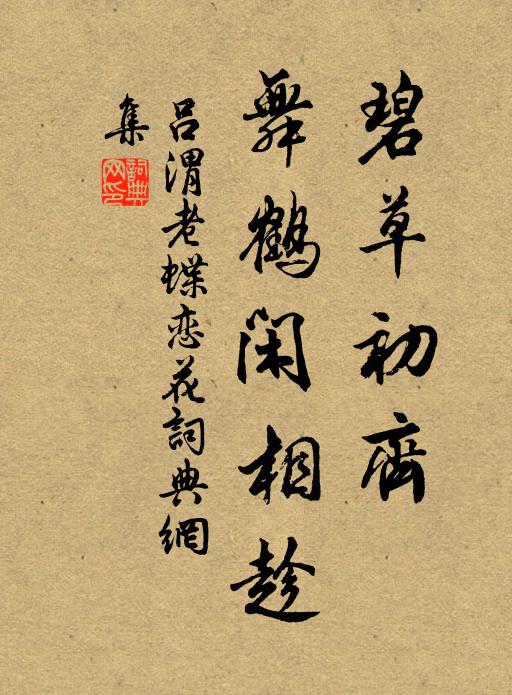 碧草初齊
舞鶴閑相趁
呂渭老蝶恋花詞典網
集
詞典
网印